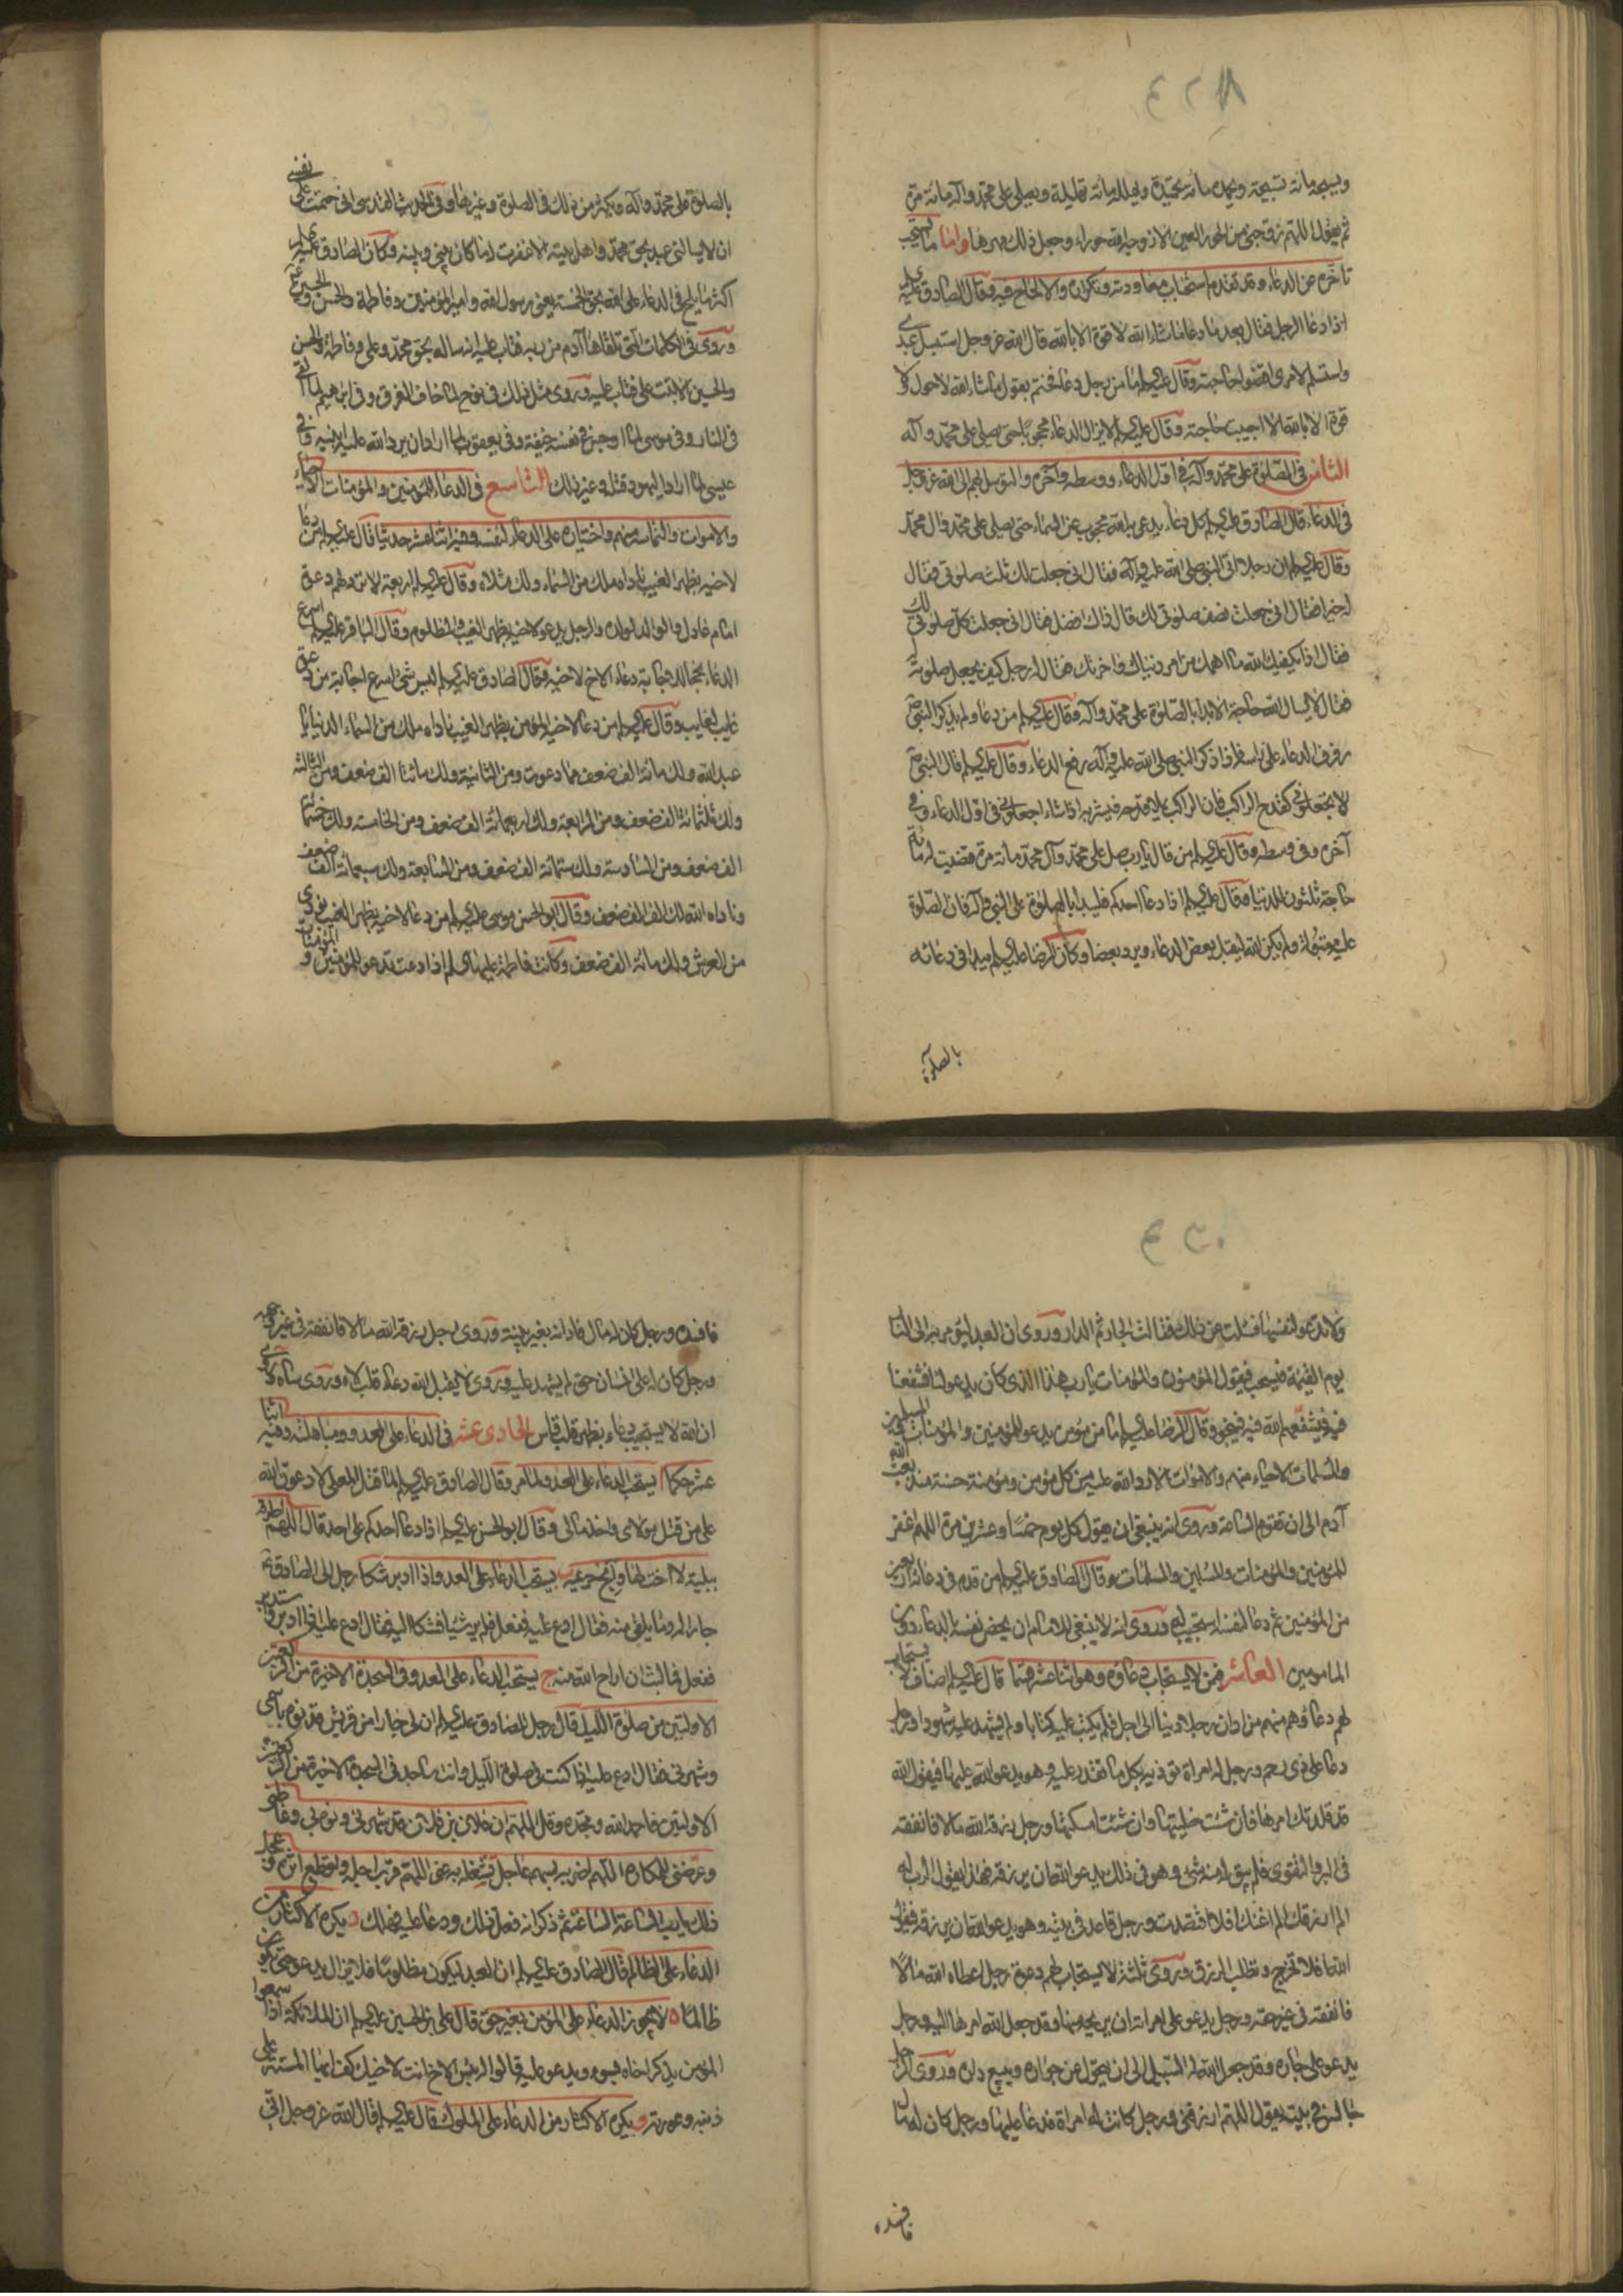 ٤٢٨
ويسبحه مائة تسبيحة ويحمده مائة تحميدة ويهلله مائة تهليلة ويصلي على محمد وآله مائة مرة
ثم يقول اللهم زوجني من الحور العين الا زوجه الله حوراء وجعل ذلك مهرها واما ما يستحب
تأخره عن الدعاء وقد تقدم استحباب معاودته وتكراره والالحاح فيه وقال الصادق عليه السلم
اذا دعا الرجل فقال بعد ما دعا ما شاء الله لا قوة الا بالله قال الله عز وجل استبسل عبدي
واستسلم لامري اقضوا حاجته وقال عليه السلم ما من رجل دعا فختم بقول ما شاء الله لا حول ولا
قوة الا بالله الا اجيبت حاجته وقال عليه السلم لا يزال الدعاء محجوبا حتى يصلي على محمد وآله
الثامن في الصلوة على محمد وآله في اول الدعاء ووسطه وآخره والتوسل بهم الى الله عز وجل
في الدعاء قال الصادق عليه السلم كل دعاء يدعى به الله محجوب عن السماء حتى يصلي على محمد وآل محمد
وقال عليه السلم ان رجلا اتى النبي صلى الله عليه وآله فقال اني جعلت لك ثلث صلوتي فقال
له خيرا فقال اني جعلت نصف صلوتي لك قال ذاك افضل فقال اني جعلت كل صلوتي لك
فقال اذا يكفيك الله ما اهمك من امر دنياك وآخرتك فقال له رجل كيف يجعل صلوته له
فقال لا يسال الله حاجة الا بدا بالصلوة على محمد وآله وقال عليه السلم من دعا ولم يذكر النبي ص
رفرف الدعاء على راسه فاذا ذكر النبي صلى الله عليه وآله رفع الدعاء وقال عليه السلم قال النبي ص
لا تجعلوني كقدح الراكب فان الراكب يملأ قدحه فيشربه اذا شاء اجعلوني في اول الدعاء وفي
آخره وفي وسطه وقال عليه السلم من قال يا رب صل على محمد وآل محمد مائة مرة قضيت له مائة
حاجة ثلثون للدنيا وقال عليه السلم اذا دعا احدكم فليبدا بالصلوة على النبي وآله فان الصلوة
عليه مقبولة ولم يكن الله ليقبل بعض الدعاء ويرد بعضا وكان الرضا عليه السلم يبدا في دعائه
بالصلوة
بالصلوة على محمد وآله ويكثر من ذلك في الصلوة وغيرها وفي الحديث القدسي اني حتمت على نفسي
ان لا يسالني عبد بحق محمد واهل بيته الا غفرت له ما كان بيني وبينه وكان الصادق عليه السلم
اكثر ما يلح في الدعاء على الله بحق الخمسة يعني رسول الله وامير المؤمنين وفاطمة والحسن والحسين ع
وروي في الكلمات التي تلقاها آدم من ربه فتاب عليه انه ساله بحق محمد وعلي وفاطمة والحسن
والحسين الا تبت علي فتاب عليه وروي مثل ذلك في نوح لما خاف الغرق وفي ابراهيم لما القي
في النار وفي موسى لما اوجس في نفسه خيفة وفي يعقوب لما اراد ان يرد الله عليه ابنيه وفي
عيسى لما اراد اليهود قتله وغير ذلك التاسع في الدعاء للمؤمنين والمؤمنات الاحياء
والاموات والتماسه منهم واختياره على الدعاء لنفسه وفيه اثنا عشر حديثا قال عليه السلم من دعا
لاخيه بظهر الغيب ناداه ملك من السماء ولك مثلاه وقال عليه السلم اربعة لا ترد لهم دعوة
امام عادل والوالد لولده والرجل يدعو لاخيه بظهر الغيب والمظلوم وقال الباقر عليه السلم اسرع
الدعاء نجحا للاجابة دعاء الاخ لاخيه وقال الصادق عليه السلم ليس شئ اسرع اجابة من دعوة
غايب لغايب وقال عليه السلم من دعا لاخيه المؤمن بظهر الغيب ناداه ملك من السماء الدنيا يا
عبد الله ولك مائة الف ضعف مما دعوت ومن الثانية ولك مائتا الف ضعف ومن الثالثة
ولك ثلثمائة الف ضعف ومن الرابعة ولك اربعمائة الف ضعف ومن الخامسة ولك خمسمائة
الف ضعف ومن السادسة ولك ستمائة الف ضعف ومن السابعة ولك سبعمائة الف ضعف
وناداه الله لك الف الف ضعف وقال ابو الحسن موسى عليه السلم من دعا لاخيه بظهر الغيب نودي
من العرش ولك مائة الف ضعف وكانت فاطمة عليها السلم اذا دعت تدعو للمؤمنين والمؤمنات
٤٣٠
ولا تدعو لنفسها فسئلت عن ذلك فقالت الجار ثم الدار وروي ان العبد ليؤمر به الى النار
يوم القيمة فيسحب فيقول المؤمنون والمؤمنات يا رب هذا الذي كان يدعو لنا فشفعنا
فيه فيشفعهم الله فيه فينجو وقال الرضا عليه السلم ما من مؤمن يدعو للمؤمنين والمؤمنات والمسلمين
والمسلمات الاحياء منهم والاموات الا رد الله عليه من كل مؤمن ومؤمنة حسنة منذ بعث الله
آدم الى ان تقوم الساعة وروي انه ينبغي ان يقول كل يوم خمسا وعشرين مرة اللهم اغفر
للمؤمنين والمؤمنات والمسلمين والمسلمات وقال الصادق عليه السلم من قدم في دعائه اربعين
من المؤمنين ثم دعا لنفسه استجيب له وروي انه لا ينبغي للامام ان يخص نفسه بالدعاء دون
المامومين العاشر فمن لا يستجاب دعاؤه وهو اثنا عشر قسما قال عليه السلم اصناف لا يستجاب
لهم دعاؤهم منهم من ادان رجلا دينا الى اجل فلم يكتب عليه كتابا ولم يشهد عليه شهودا ورجل
دعا على ذي رحم ورجل له امراة تؤذيه بكل ما تقدر عليه وهو يدعو الله عليها فيقول الله
قد قلدتك امرها فان شئت خليتها وان شئت امسكتها ورجل رزقه الله مالا فانفقه
في البر والتقوى فلم يبق له منه شئ وهو في ذلك يدعو الله ان يرزقه فهذا يقول الرب له
الم ارزقك الم اغنك افلا اقتصدت ورجل قاعد في بيته وهو يدعو الله ان يرزقه فيقول
الله افلا تخرج وتطلب الرزق وروي ثلثة لا يستجاب لهم دعوة رجل اعطاه الله مالا
فانفقه في غير حقه ورجل يدعو على امراته ان يريحه منها وقد جعل الله امرها اليه ورجل
يدعو على جاره وقد جعل الله له السبيل الى ان يتحول عن جواره ويبيع داره وروي رجل
جالس في بيته يقول اللهم ارزقني ورجل كانت له امراة فدعا عليها ورجل كان له مال
فافسده
فافسده ورجل كان له مال فادانه بغير بينة وروي رجل رزقه الله مالا فانفقه في غير وجهه
ورجل كان له على انسان حق لم يشهد عليه وروي لا يقبل الله دعاء قلب لاه وروي
ان الله لا يستجيب دعاء بظهر قلب قاس الحادي عشر في الدعاء على العدو ومباهلته وفيه اثنا
عشر حكما ا يستحب الدعاء على العدو لما مر وقال الصادق عليه السلم لما قتل المعلى لادعون الله
على من قتل مولاي واخذ مالي وقال ابو الحسن عليه السلم اذا دعا احدكم على احد قال اللهم اطرقه
ببلية لا اخت لها وابح حريمه ب يستحب الدعاء على العدو اذا ادبر شكا رجل الى الصادق ع
جارا له وما يلقى منه فقال ادع عليه ففعل فلم ير شيئا فشكا اليه فقال ادع عليه اذا ادبر واستدبر
ففعل فما لبث ان اراح الله منه ج يستحب الدعاء على العدو في السجدة الاخيرة من الركعتين
الاولتين من صلوة الليل قال رجل للصادق عليه السلم ان لي جارا من قريش قد نوه باسمي
وشهرني فقال ادع عليه اذا كنت في صلوة الليل وانت ساجد في السجدة الاخيرة من الركعتين
الاولتين فاحمد الله ومجده وقل اللهم ان فلان بن فلان قد شهرني ونوه بي وغاظني
وعرضني للمكاره اللهم اضربه بسهم عاجل تشغله به عني اللهم قرب اجله واقطع اثره وعجل
ذلك يا رب الساعة الساعة ثم ذكر انه فعل ذلك ودعا عليه فهلك د يكره الاكثار من
الدعاء على الظالم قال الصادق عليه السلم ان العبد ليكون مظلوما فلا يزال يدعو حتى يكون
ظالما ه لا يجوز الدعاء على المؤمن بغير حق قال علي بن الحسين عليه السلم ان الملائكة اذا سمعوا
المؤمن يذكر اخاه بسوء ويدعو عليه قالوا له بئس الاخ انت لاخيك كف ايها المستر على
ذنبه وعورته و يكره الاكثار من الدعاء على الملوك قال عليه السلم قال الله عز وجل اني